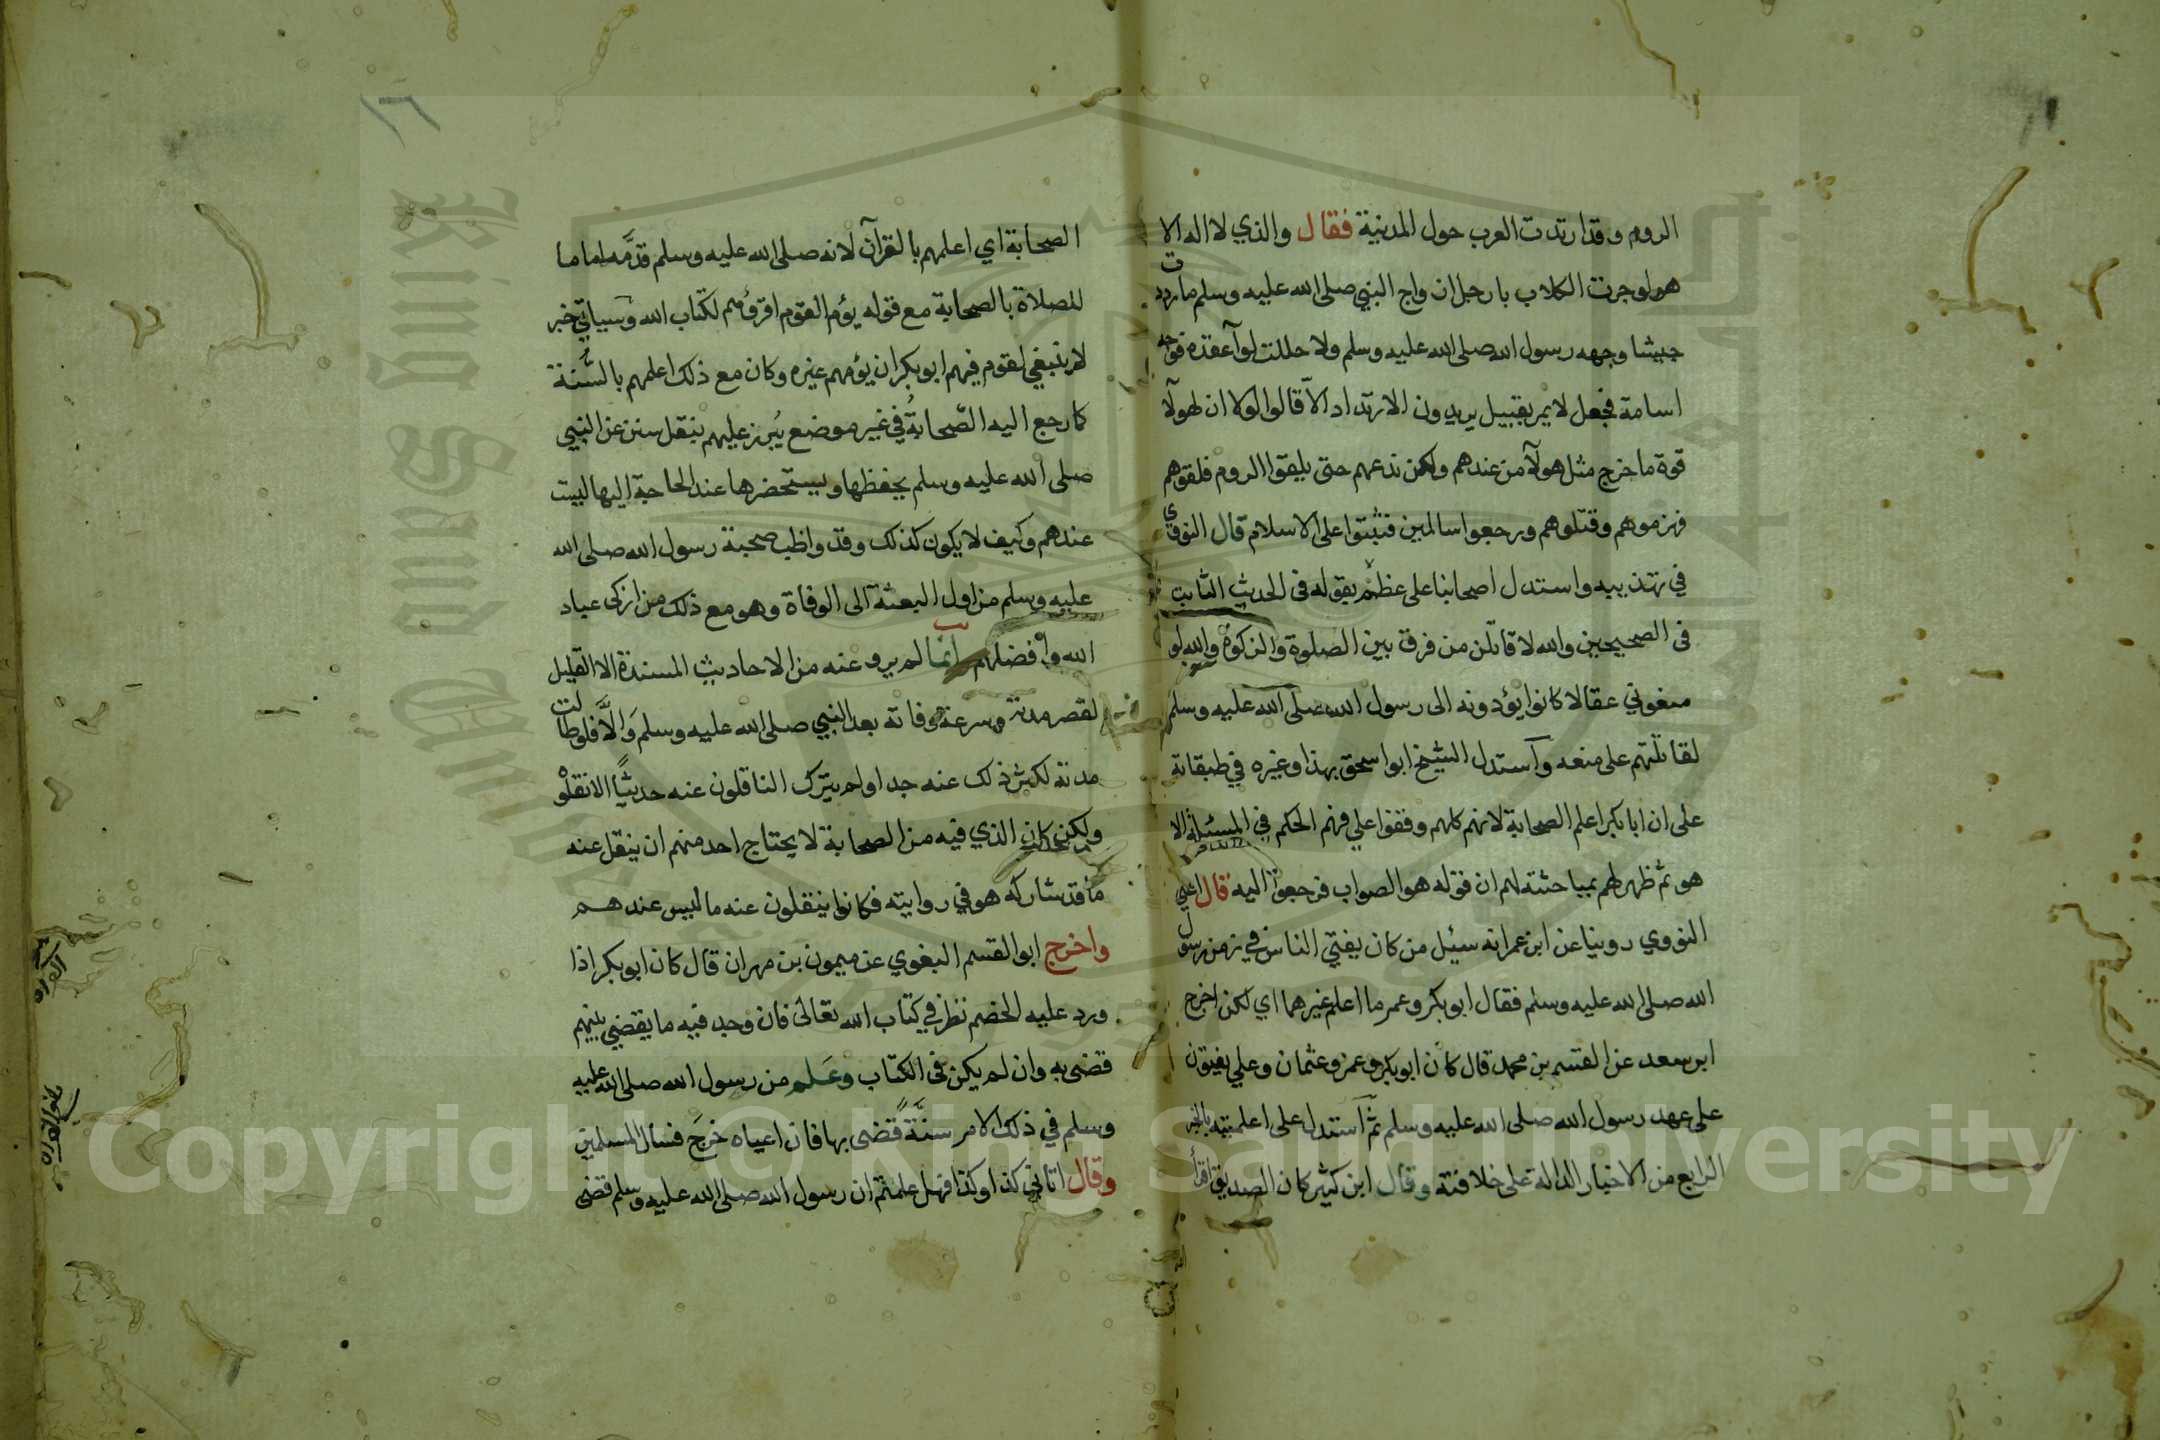 الروم وقد ارتدت العرب حول المدينة فقال والذي لا اله الا
هو لوجرت الكلاب بارجل ازواج النبي صلى الله عليه وسلم ما رددت
جيشا وجهه رسول الله صلى الله عليه وسلم ولا حللت لوآ عقده فوجه
اسامة فجعل لا يمر بقبيل يريدون الارتداد الاّ قالوا لولا ان لهولآ
قوة ما خرج مثل هولآ من عندهم ولكن ندعهم حتى يلقوا الروم فلقوهم
فهزموهم وقتلوهم ورجعوا سالمين فثبتوا على الاسلام قال النووي
في تهذيبه واستدل اصحابنا على عظم بقوله في الحديث الثابت
في الصحيحين والله لاقاتلن من فرق بين الصلوة والزكوة والله لو
منعوني عقالا كانوا يؤدونه الى رسول الله صلى الله عليه وسلم
لقاتلتهم على منعه وآستدل الشيخ ابواسحق بهذا وغيره في طبقاته
على ان ابا بكر اعلم الصحابة لانهم كلهم وقفوا على فهم الحكم في المسئلة الا
هو ثم ظهر لهم بمباحثته لهم ان قوله هو الصواب فرجعوا اليه قال اعني
النووي روينا عن ابن عمر انه سئيل من كان يفتي الناس في زمن رسول
الله صلى الله عليه وسلم فقال ابو بكر وعمر ما اعلم غيرهما اي لكن اخرج
ابن سعد عن القسم بن محمد قال كان ابو بكر وعمر وعثمان وعلي يفتون
على عهد رسول الله صلى الله عليه وسلم ثم آستدل على اعلميته بالخبر
الرابع من الاخبار الدالة على خلافته وقال ابن كثير كان الصديق اقرأ
١٦
الصحابة اي اعلمهم بالقرآن لانه صلى الله عليه وسلم قدَّمه اماما
للصلاة بالصحابة مع قوله يؤم القوم اقرؤهم لكتاب الله وسياتي خبر
لا ينبغي لقوم فيهم ابو بكر ان يؤمهم غيره وكان مع ذلك اعلمهم بالسُّنة
كما رجع اليه الصّحابةُ في غير موضع يُبرز عليهم بنقل سنن عن النبي
صلى الله عليه وسلم يحفظها ويستحضرها عند الحاجة اليها ليست
عندهم وكيف لا يكون كذلك وقد واظب صحبة رسول الله صلى الله
عليه وسلم من اول البعثة الى الوفاة وهو مع ذلك من ازكى عباد
الله وافضلهم انما لم يرو عنه من الاحاديث المسندة الا القليل
لقصر مدته وسرعة وفاته بعد النبي صلى الله عليه وسلم وَالَّا فلوطالت
مدته لكثر ذلك عنه جدا ولم يترك الناقلون عنه حديثًا الا نقلوْ
ولكن كان الذي فيه من الصحابة لا يحتاج احد منهم ان ينقل عنه
ما قد شاركه هو في روايته فكانوا ينقلون عنه ما ليس عندهم
واخرج ابو القسم البغوي عن ميمون بن مهران قال كان ابو بكر اذا
ورد عليه الخصم نظر في كتاب الله تعالى فان وجد فيه ما يقضي بينهم
قضى به وان لم يكن في الكتاب وعَلم من رسول الله صلى الله عليه
وسلم في ذلك الامر سنَّةً قضى بها فان اعياه خرجَ فسال المسلمين
وقال اتاني كذا وكذا فهل علمتم ان رسول الله صلى الله عليه وسلم قضى
King Saud University
Copyright © King Saud University